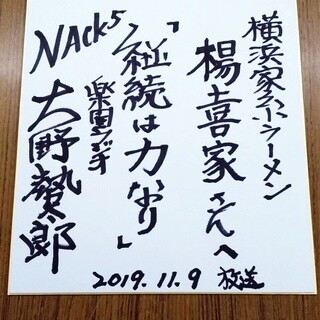 横浜家系ラーメン
楊喜家さんへ
「継続は力なり」
NACK5
楽園ラジオ
大野勢太郎
2019.11.9 放送